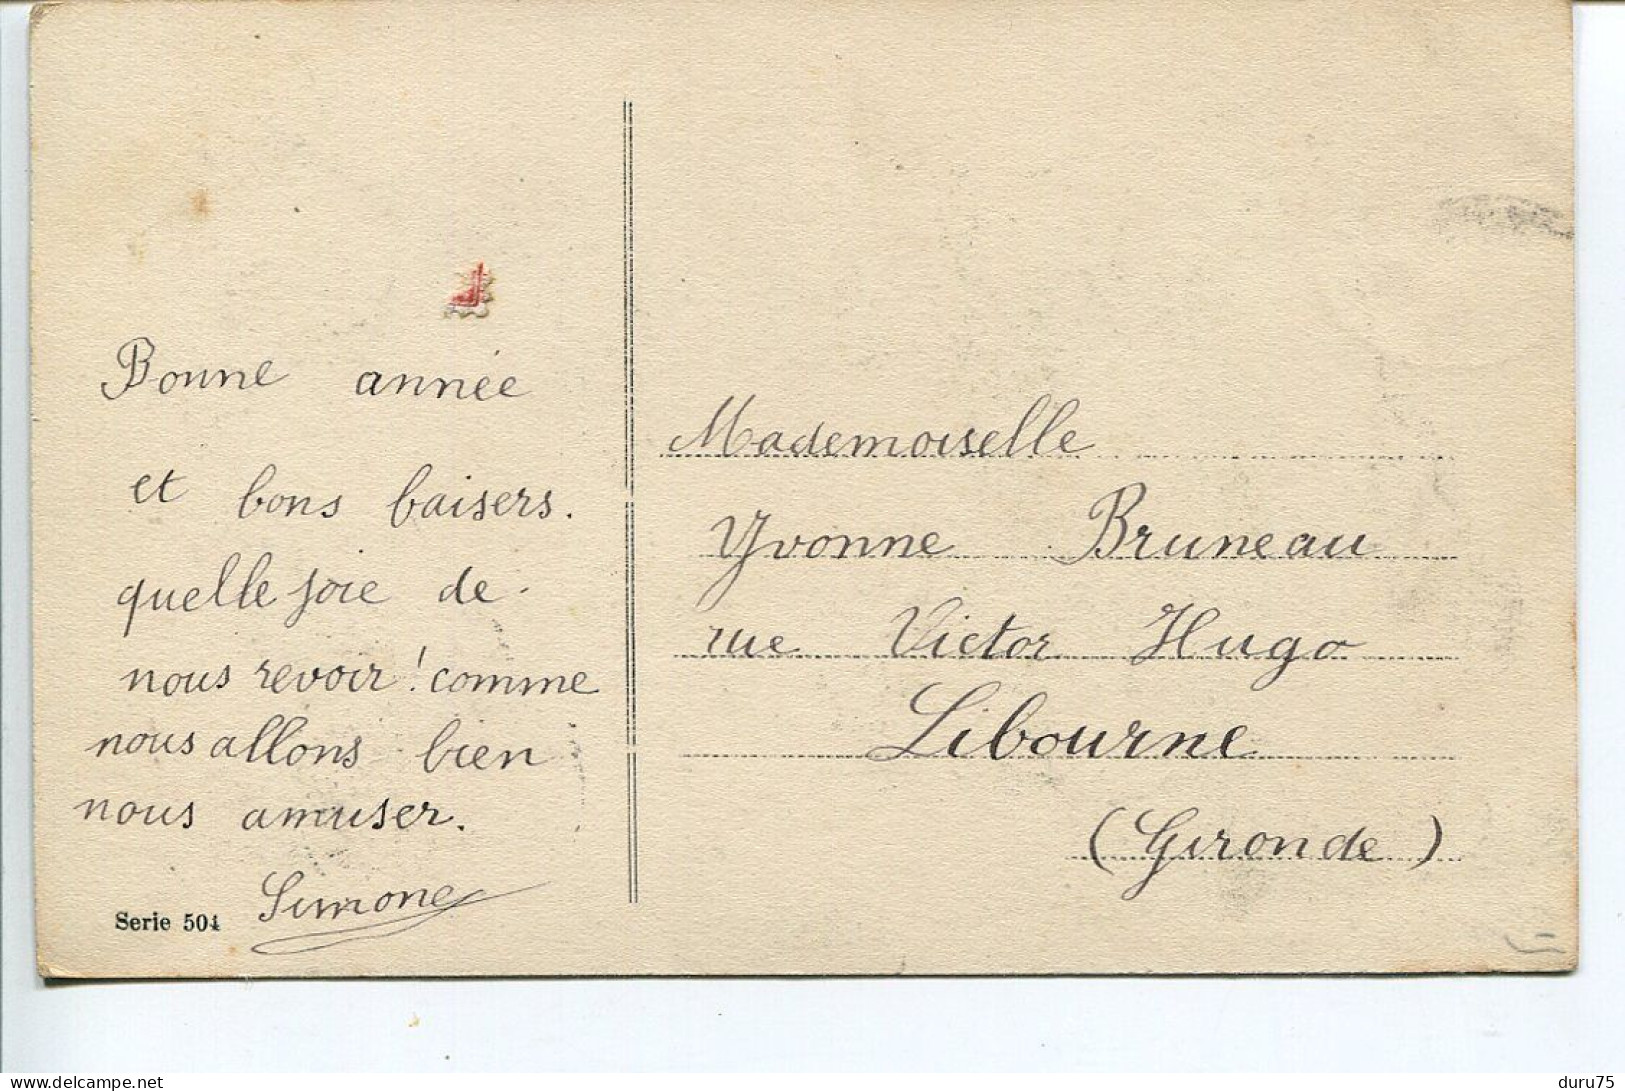 Bonne année
et bons baisers.
quelle joie de
nous revoir ! comme
nous allons bien
nous amuser.
Simone
Serie 504
Mademoiselle
Yvonne Bruneau
rue Victor Hugo
Libourne
(Gironde)
www.delcampe.net
duru75